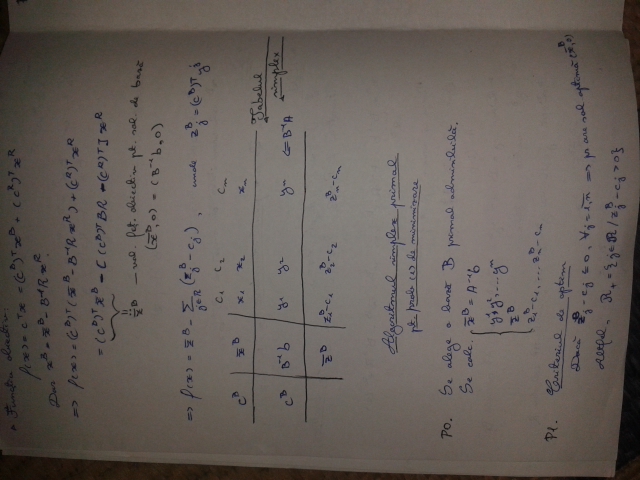 * Functia obiectiv:
f(x) = cᵀx = (cᴮ)ᵀxᴮ + (cᴿ)ᵀxᴿ
Dar xᴮ = x̄ᴮ - B⁻¹R xᴿ.
=> f(x) = (cᴮ)ᵀ(x̄ᴮ - B⁻¹R xᴿ) + (cᴿ)ᵀxᴿ
= (cᴮ)ᵀx̄ᴮ - [(cᴮ)ᵀBR - (cᴿ)ᵀ] xᴿ
z̄ᴮ — val. fct. obiectiv pt. sol. de bază
(x̄ᴮ, 0) = (B⁻¹b, 0)
=> f(x) = z̄ᴮ - Σ j∈R (zⱼᴮ - cⱼ), unde zⱼᴮ = (cᴮ)ᵀ yʲ
c₁ c₂ cₙ
cᴮ x̄ᴮ x₁ x₂ xₙ
Tabelul
simplex
cᴮ B⁻¹b y¹ y² yⁿ <= B⁻¹A
z̄ᴮ z₁ᴮ-c₁ z₂ᴮ-c₂ zₙᴮ-cₙ
Algoritmul simplex primal
pt. probl (1) de minimizare
P0. Se alege o bază B primal admisibilă.
Se calc. x̄ᴮ = A⁻¹b
y¹, y², ... yⁿ
z̄ᴮ
z₁ᴮ-c₁, ... zₙᴮ-cₙ
P1. Criteriul de optim
Dacă zⱼᴮ - cⱼ ≤ 0, ∀j = 1,n => pr are sol optimă (x̄ᴮ, 0)
Altfel, R₊ = {j∈R / zⱼᴮ - cⱼ > 0}